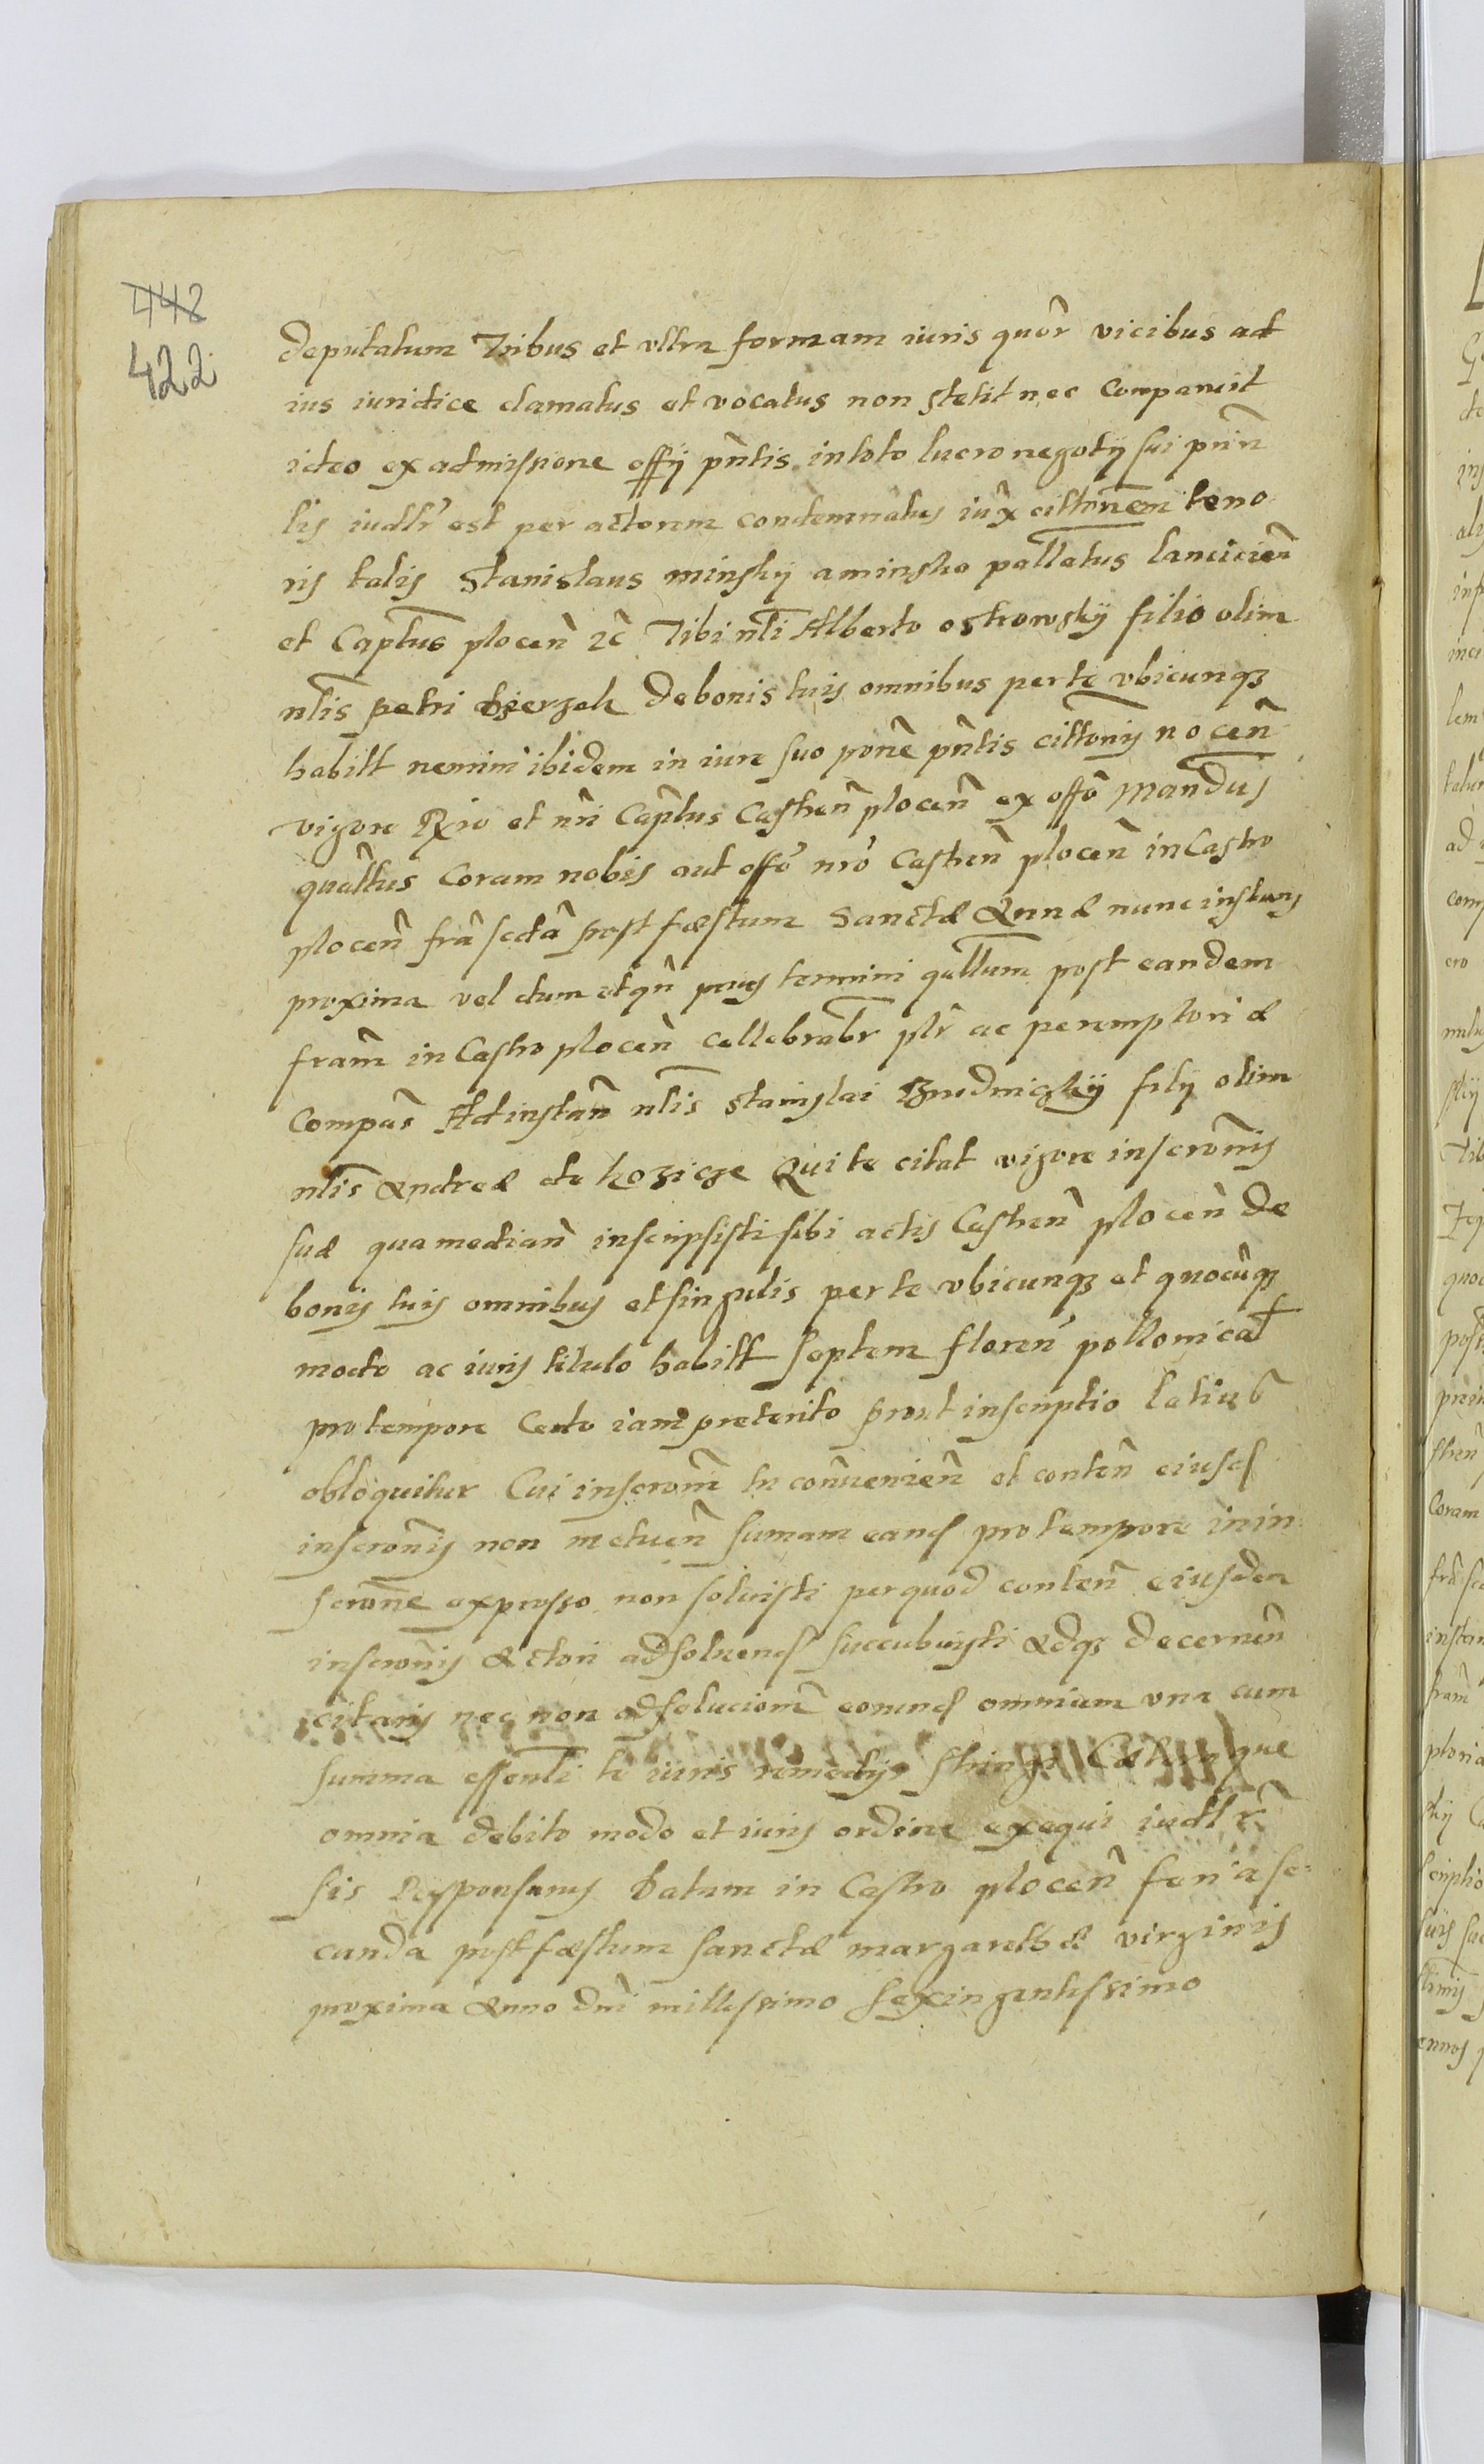 448
422
deputatum Tribus et vltra formam iuris quor̃ vicibus ad
ius iuridice clamatus et vocatus non stetit nec Comparuit
ideo ex admissione offỹ pñtis in toto lucro negotij sui prin
lis iudlr̃ est per actorem condemnatus iux̃ cittõnem teno
ris talis Stanislaus minskij a minsko pallatus lancicieñ
et Captus̃ ploceñ zc̃ Tibi nl̃i Alberto ostrowskij filio olim
nl̃is petri De bonis tuis omnibus per te vbicunq3
habitt nemini ibidem in iure suo ponẽ pñtis cittõnis noceñ
vigore Rgio et nr̃i Captus Castreñ ploceñ ex offõ Mandus̃
quattus Coram nobis aut offõ nrõ Castreñ ploceñ in Castro
ploceñ frã sedã post fæstum Sanctæ Annæ nunc instans
proxima vel dum et qñ prius termini qllum post eandem
fram̃ in Castro ploceñ cellebrabr̃ plr̃ ac peremptoriæ
Compãs Ad instañ nl̃is stanislai Brudniczkij filij olim
nl̃is Andreæ de kozicze Qui te citat vigore inscrõnis
suæ qua mediañ inscripsisti sibi actis Castreñ ploceñ de
bonis tuis omnibus et singulis per te vbicunq3 et quocũq3
modo ac iuris titulo habitt septem floreñ pollonicat
pro tempore Certo iam preterito prout inscriptio latius
obloquitur Cui inscrom̃ tu conũenieñ et conteñ eiusd
inscrõnis non metueñ sumam eand pro tempore in in
scrõne expresso non solvisti per quod conteñ eiusdem
inscrõnis Actori ad solvend succubuisti Adq3 decerneñ
citaris nec non ad solucionẽ eorund omnium vna cum
summa essentli te iuris remedijs stringi Cæteraque
omnia debito modo et iuris ordine exequi iudlr̃
sis Responsurus Datum in Castro ploceñ feria se=
cunda post fæstum sanctæ margarethæ virginis
proxima Anno dnĩ millessimo sexingentessimo